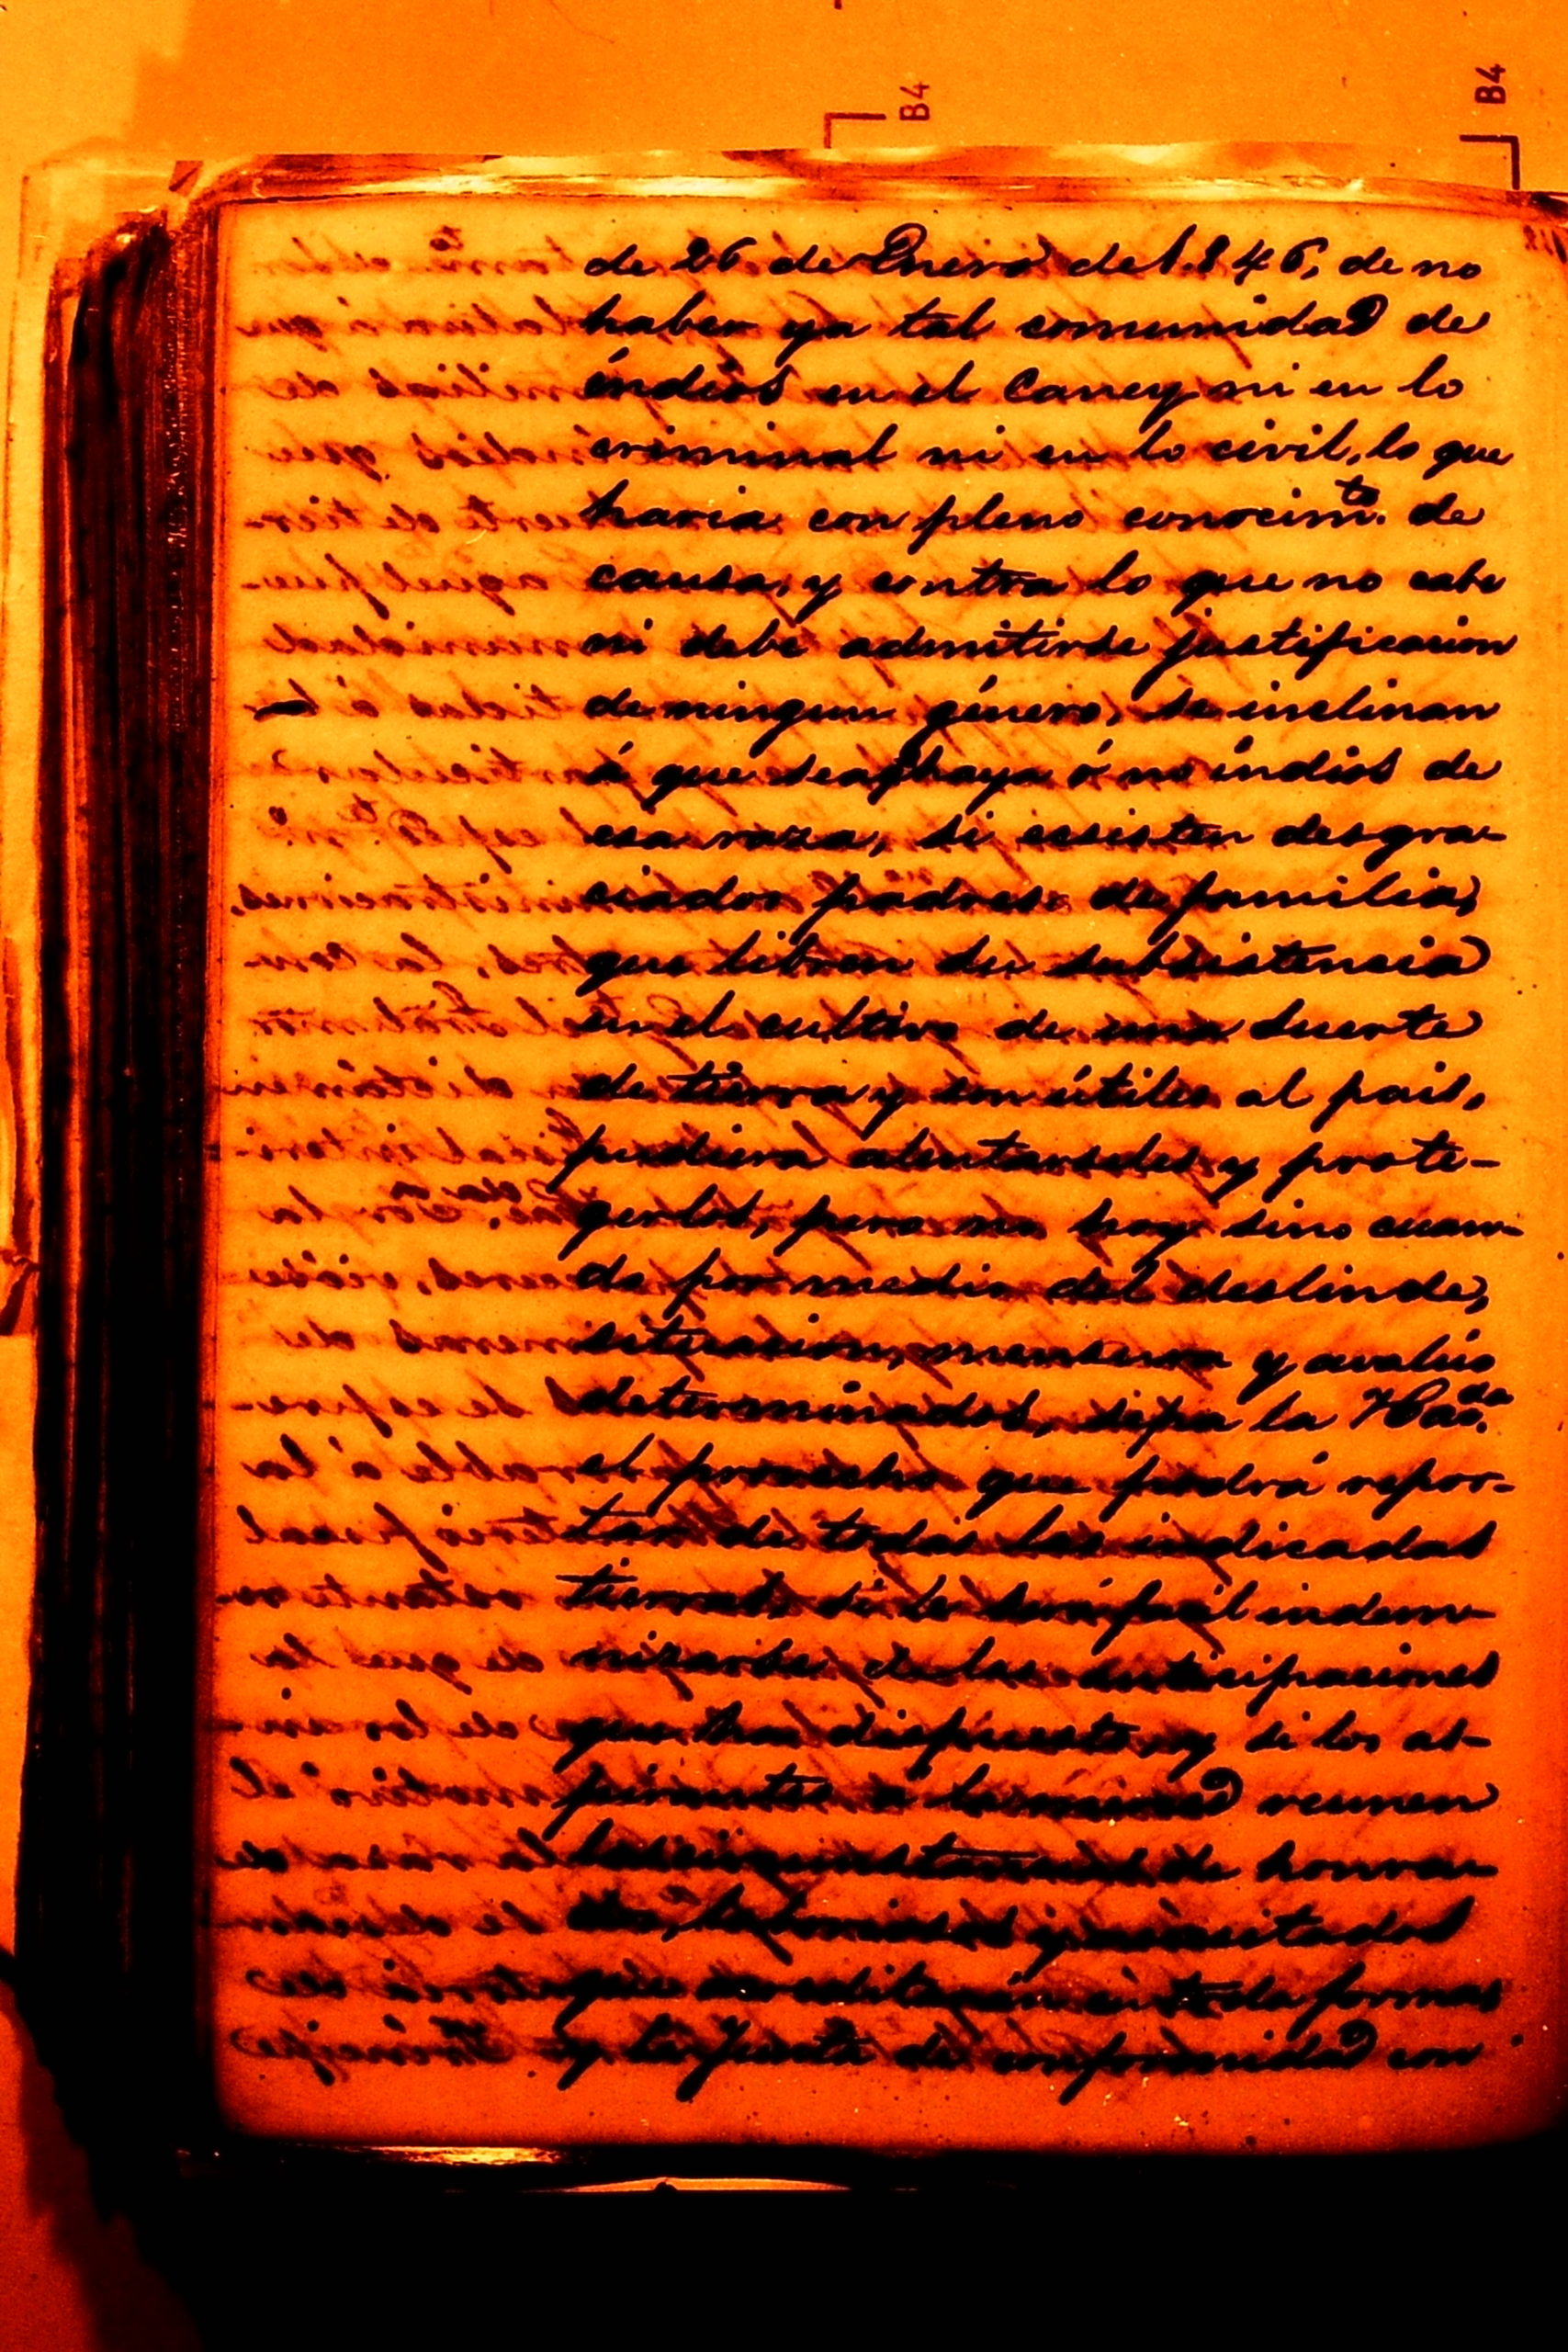 B4
B4
de 26 de Enero de 1.846, de no
haber ya tal comunidad de
indios en el Caney ni en lo
criminal ni en lo civil, lo que
haria con pleno conocim.to de
causa, y contra lo que no cabe
ni debe admitirse justificacion
de ningun género, se inclinan
á que sea, haya ó no indios de
esa raza, si ecsisten desgra-
ciados padres de familia,
que libran su subsistencia
en el cultivo de una suerte
de tierra y son útiles al pais,
pudiera alentarseles y prote-
gerlos, pero no hoy sino cuan-
do por medio del deslinde,
situacion, mensura y avalúo
determinados, sepa la Hac.da
el provecho que podrá repor-
tar de todas las indicadas
tierras, si le será facil indem-
nizarse de las anticipaciones
que ha dispuesto, y si los as-
pirantes a la reunen
las circunstancias de honra-
dez, laboriosos y necesitados
que acreditarán en toda forma
y la Junta de conformidad con